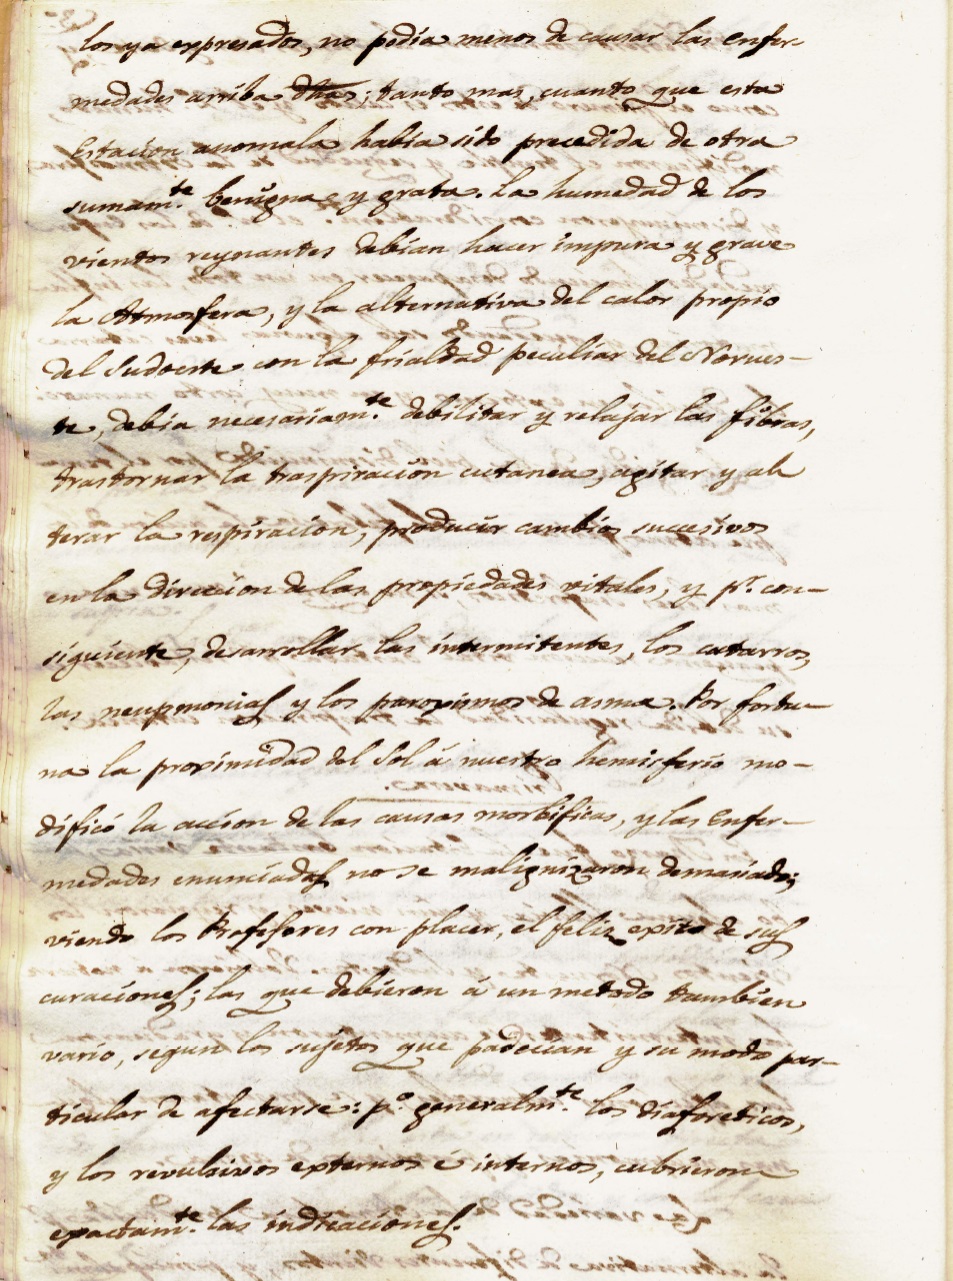 los ya expresados, no podia menos de causar las enfer-
medades arriba dhas; tanto mas, cuanto que esta
Estacion anomala habia sido precedida de otra
sumam.te benigna y grata. La humedad de los
vientos reynantes debian hacer impura y grave
la Atmosfera, y la alternativa del calor propio
del Sudoeste con la frialdad peculiar del Norues-
te, debia necesariam.te debilitar y relajar las fibras,
trastornar la traspiracion cutanea, agitar y al
terar la respiracion, producir cambios succesivos
en la direccion de las propiedades vitales, y p.r con-
siguiente, desarrollar las intermitentes, los catarros,
las neupmonias y los paroxismos de asma. Por fortu-
na la proximidad del Sol á nuestro hemisferio mo-
dificó la accion de las causas morbificas, y las enfer-
medades enunciadas no se malignizaron demasiado;
viendo los Profesores con placer, el feliz exito de sus
curaciones; las que debieron á un metodo tambien
vario, segun los sujetos que padecian y su modo par-
ticular de afectarse: p.o generalm.te los diaforeticos,
y los revulsivos externos é internos, cubrieron
exactam.te las indicaciones.